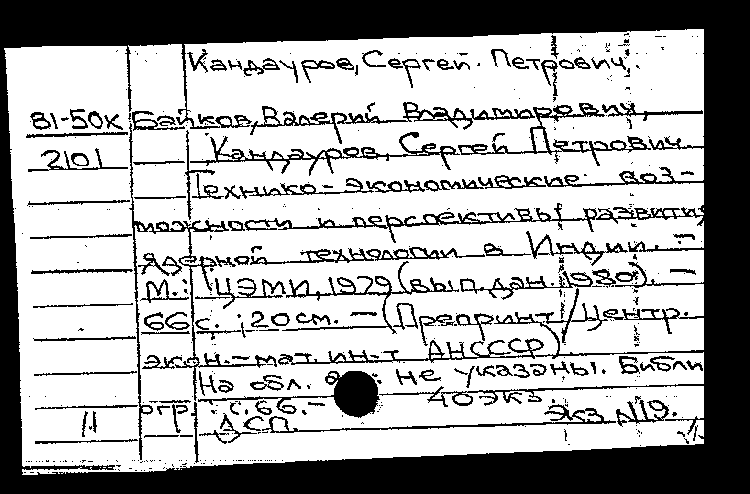 Кандауров, Сергей Петрович.
81-50к Байков, Валерий Владимирович,
2101 Кандауров, Сергей Петрович.
Технико-экономические воз-
можности и перспективы развития
ядерной технологии в Индии. –
М.: ЦЭМИ, 1979 (вып. дан. 1980). –
66 с. ; 20 см. – (Препринт / Центр.
экон.-мат. ин-т АНСССР).
На обл. : не указаны. Библи
огр.: с. 66. – 40 экз.
11 ДСП. Экз N19.